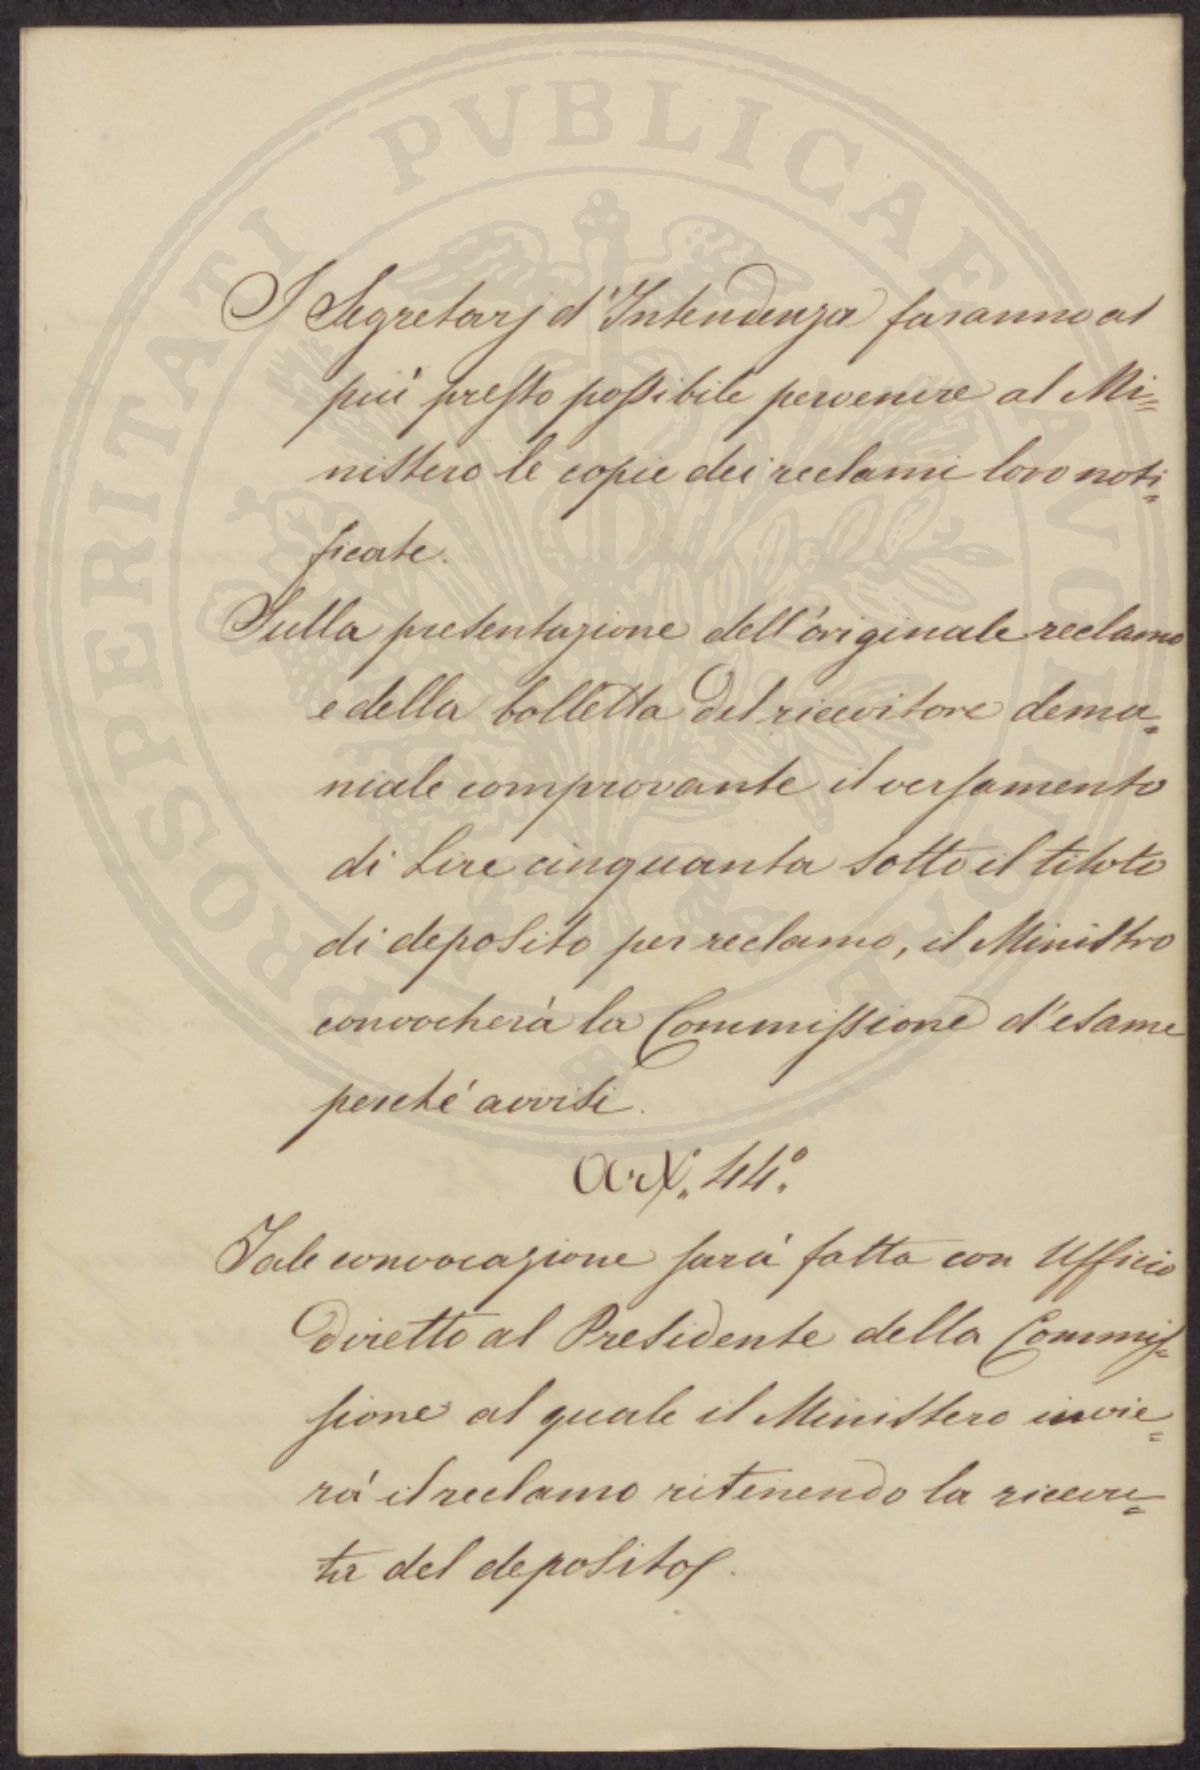 PROSPERITATI PVBLICAE AVGENDAE
I Segretarj d'Intendenza faranno al
più presto possibile pervenire al Mi=
nistero le copie dei reclami loro noti=
ficate.
Sulla presentazione dell'originale reclamo
e della bolletta del ricevitore dema=
niale comprovante il versamento
di Lire cinquanta sotto il titolo
di deposito per reclamo, il Ministro
convocherà la Commissione d'esame
perché avvisi.
Art. 44.º
Tale convocazione sarà fatta con Ufficio
diretto al Presidente della Commis=
sione al quale il Ministero invie=
rà il reclamo ritenendo la ricevu=
ta del deposito.